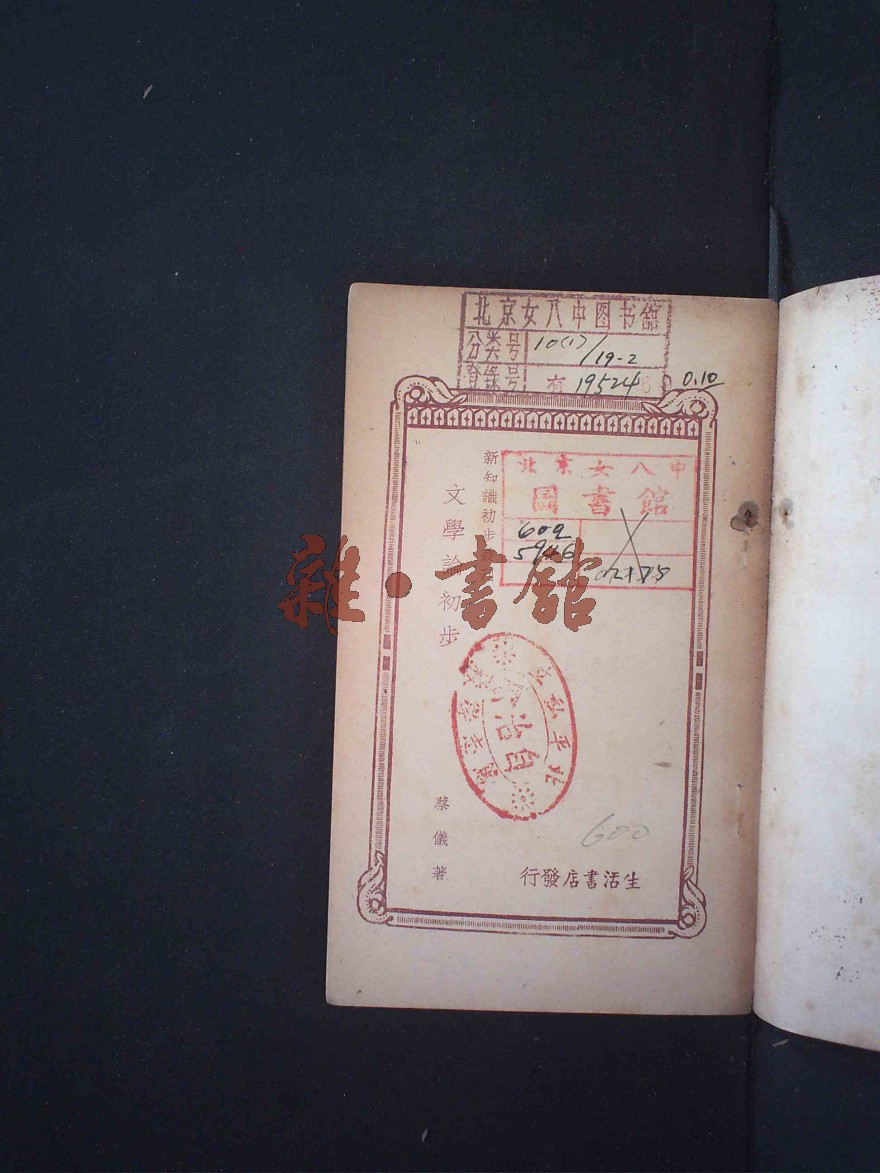 北京女八中图书舘
分类号 10(1)/19-2
登錄号 有 19524
0.10
北京女八中
圖書館
609
5946
新知識初步
文學論初步
雜·書舘
自治
北平
蔡儀著
600
生活書店發行